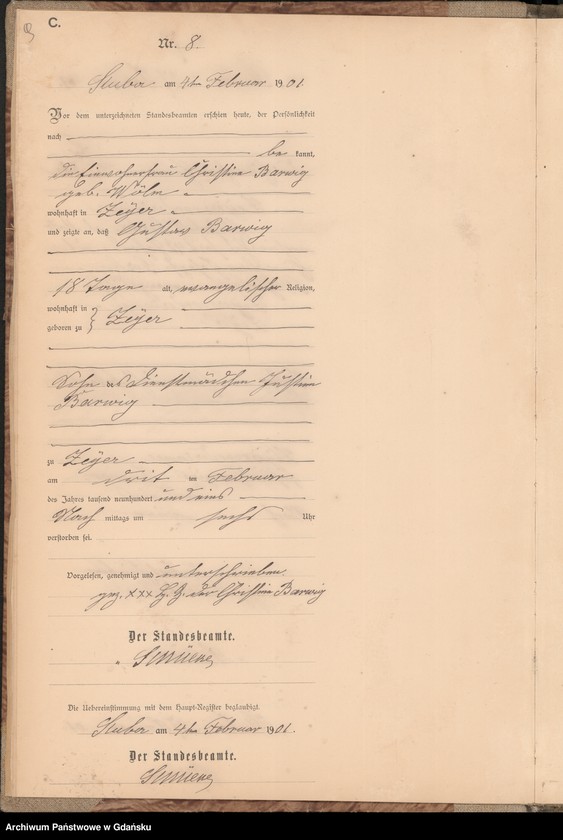 C.
Nr. 8.
Stuba am 4ten Februar 1901
Vor dem unterzeichneten Standesbeamten erschien heute, der Persönlichkeit
nach
be kannt,
die Einwohnerfrau Christine Barwig
geb. Wölm
wohnhaft in Zeyer
und zeigte an, daß Gustav Barwig
18 Tage alt, evangelischer Religion,
wohnhaft in
geboren zu } Zeyer
Sohn des Dienstmädchen Justine
Barwig
zu Zeyer
am drit ten Februar
des Jahres tausend neunhundert und eins
Nach mittags um sechs Uhr
verstorben sei.
Vorgelesen, genehmigt und unterschrieben.
gez. xxx H. Z. der Christine Barwig
Der Standesbeamte.
Die Uebereinstimmung mit dem Haupt-Register beglaubigt.
Stuba am 4ten Februar 1901.
Der Standesbeamte.
Archiwum Państwowe w Gdańsku